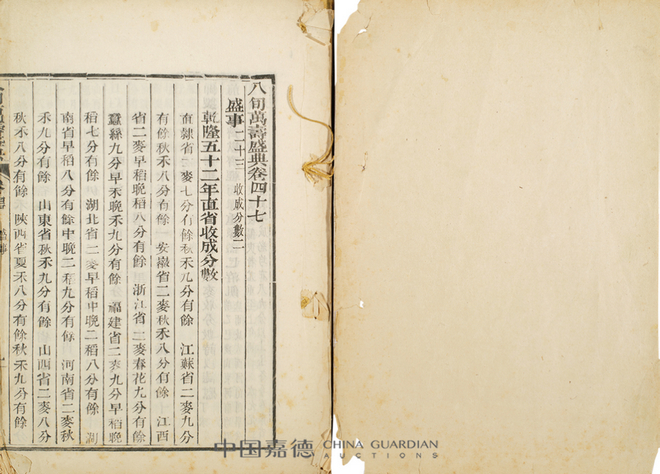 八旬萬壽盛典卷四十七
盛事二十三 收成分數二
乾隆五十二年直省收成分數
直隸省二麥七分有餘秋禾九分有餘 江蘇省二麥九分
有餘秋禾八分有餘 安徽省二麥秋禾八分有餘 江西
省二麥早稻晚稻八分有餘 浙江省二麥春花九分有餘
蠶絲九分早禾晚禾九分有餘 福建省二麥九分早稻晚
稻七分有餘 湖北省二麥早稻中晚二稻八分有餘 湖
南省早稻八分有餘中晚二稻九分有餘 河南省二麥秋
禾九分有餘 山東省秋禾九分有餘 山西省二麥八分
秋禾八分有餘 陝西省夏禾八分有餘秋禾九分有餘
中国嘉德 CHINA GUARDIAN
AUCTIONS